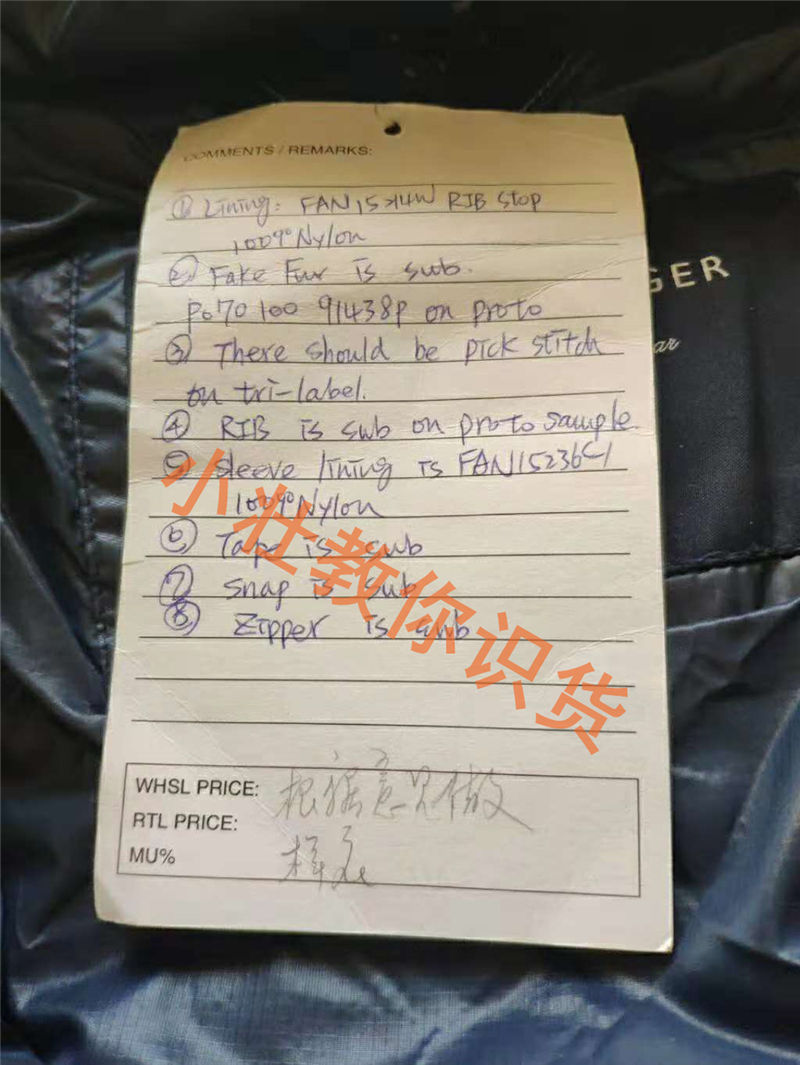 COMMENTS / REMARKS:
① Lining: FAN15214W RIB Stop
100% Nylon
② Fake Fur is sub.
P670100 91438P on proto
③ There should be pick stitch
on tri-label.
④ RIB is sub on proto sample.
⑤ Sleeve lining is FAN15236C1
100% Nylon
⑥ Tape is sub
⑦ Snap is sub
⑧ Zipper is sub
WHSL PRICE: 根据意见做
RTL PRICE:
MU% 样衣
GER
ar
小壮教你识货